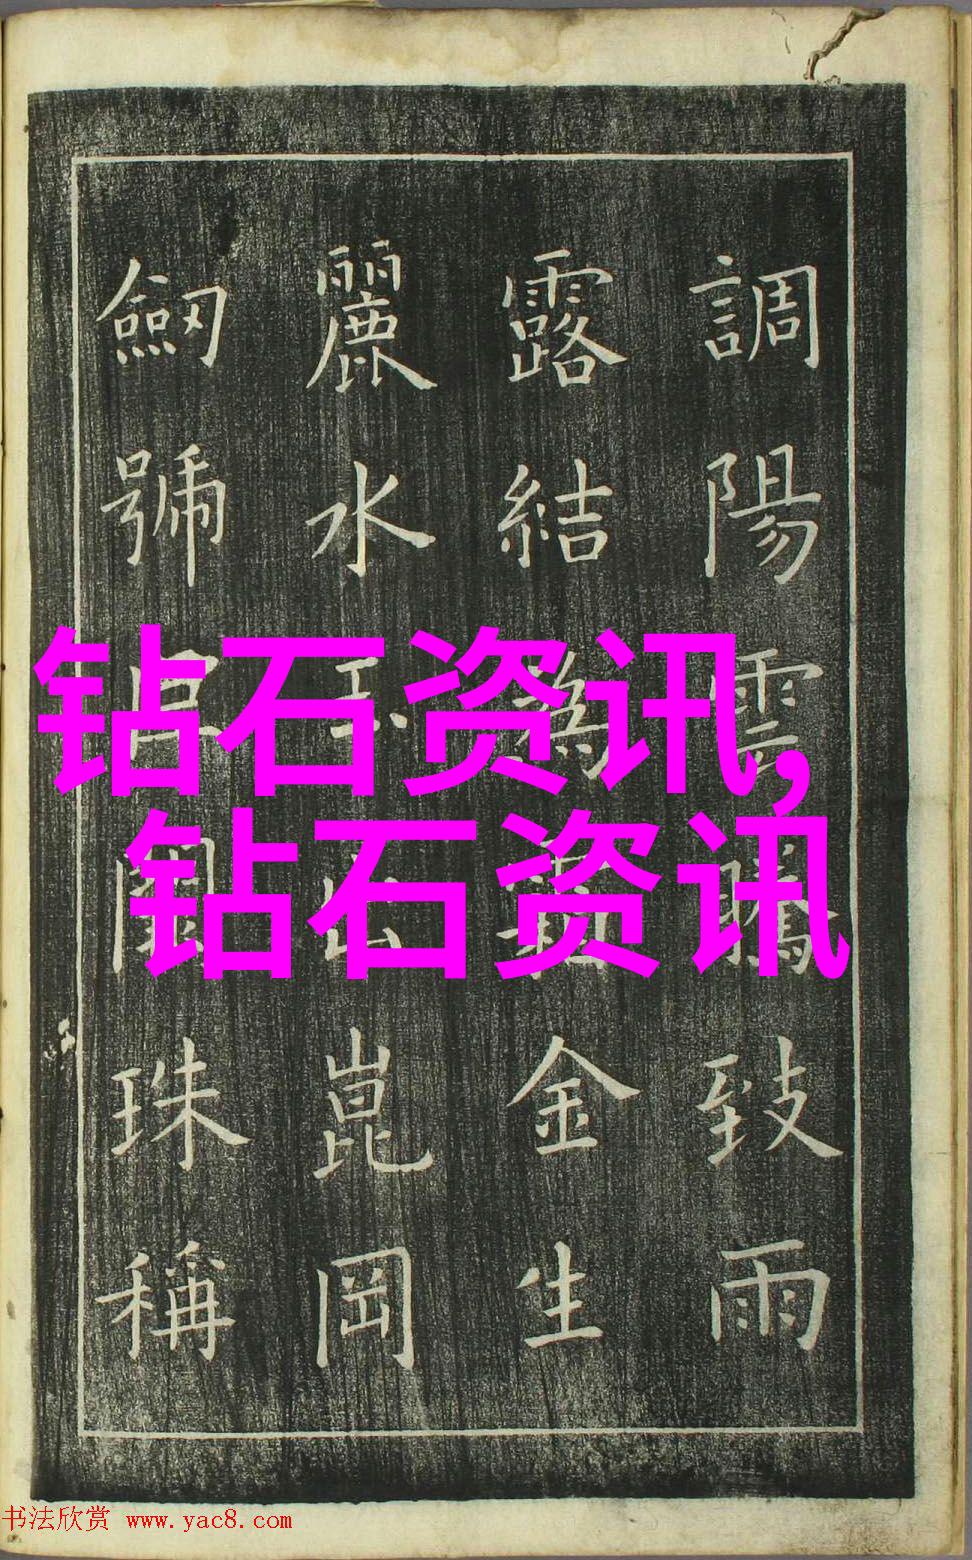 調陽雲騰致雨
露結爲霜金生
麗水玉出崑岡
劒號巨闕珠稱
钻石资讯,
钻石资讯
书法欣赏 www.yac8.com